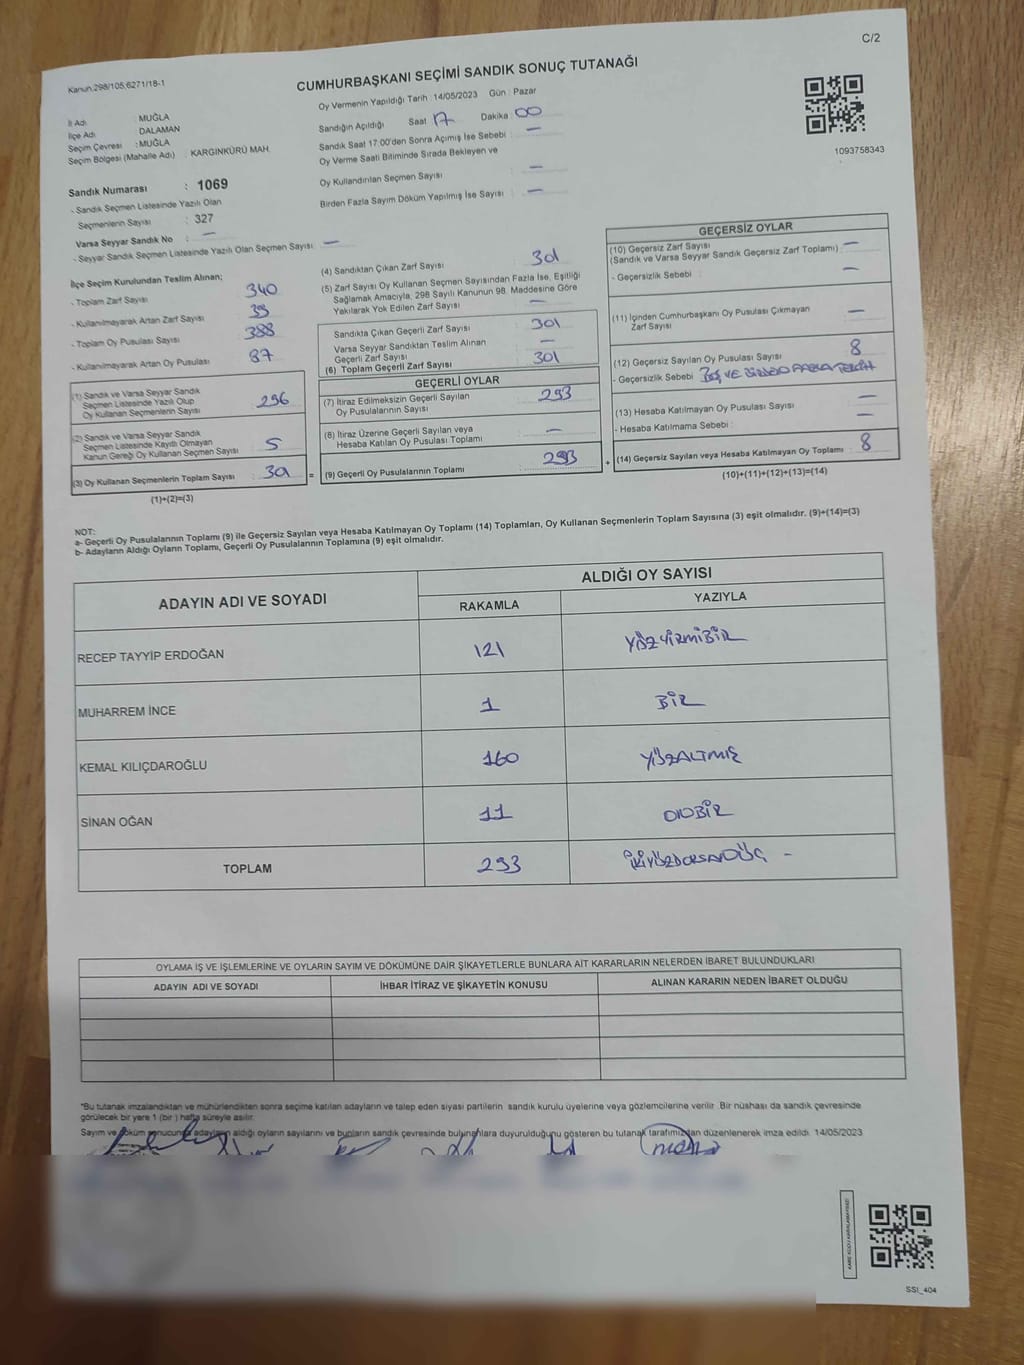 C/2
Kanun.298/105,6271/18-1
CUMHURBAŞKANI SEÇİMİ SANDIK SONUÇ TUTANAĞI
Oy Vermenin Yapıldığı Tarih : 14/05/2023 Gün : Pazar
İl Adı : MUĞLA
İlçe Adı : DALAMAN
Seçim Çevresi : MUĞLA
Seçim Bölgesi (Mahalle Adı) : KARGINKÜRÜ MAH.
Sandığın Açıldığı Saat 17 Dakika 00
Sandık Saat 17:00'den Sonra Açımış İse Sebebi : —
Oy Verme Saati Bitiminde Sırada Bekleyen ve
Oy Kullandırılan Seçmen Sayısı : —
Birden Fazla Sayım Döküm Yapılmış İse Sayısı : —
1093758343
Sandık Numarası : 1069
- Sandık Seçmen Listesinde Yazılı Olan
Seçmenlerin Sayısı : 327
Varsa Seyyar Sandık No : —
- Seyyar Sandık Seçmen Listesinde Yazılı Olan Seçmen Sayısı : —
İlçe Seçim Kurulundan Teslim Alınan;
- Toplam Zarf Sayısı : 340
- Kullanılmayarak Artan Zarf Sayısı : 39
- Toplam Oy Pusulası Sayısı : 388
- Kullanılmayarak Artan Oy Pusulası : 87
(1) Sandık ve Varsa Seyyar Sandık
Seçmen Listesinde Yazılı Olup
Oy Kullanan Seçmenlerin Sayısı : 296
(2) Sandık ve Varsa Seyyar Sandık
Seçmen Listesinde Kayıtlı Olmayan
Kanun Gereği Oy Kullanan Seçmen Sayısı : 5
(3) Oy Kullanan Seçmenlerin Toplam Sayısı : 301 =
(1)+(2)=(3)
(4) Sandıktan Çıkan Zarf Sayısı : 301
(5) Zarf Sayısı Oy Kullanan Seçmen Sayısından Fazla İse, Eşitliği
Sağlamak Amacıyla, 298 Sayılı Kanunun 98. Maddesine Göre
Yakılarak Yok Edilen Zarf Sayısı : —
Sandıkta Çıkan Geçerli Zarf Sayısı : 301
Varsa Seyyar Sandıktan Teslim Alınan
Geçerli Zarf Sayısı : —
(6) Toplam Geçerli Zarf Sayısı : 301
GEÇERLİ OYLAR
(7) İtiraz Edilmeksizin Geçerli Sayılan
Oy Pusulalarının Sayısı : 293
(8) İtiraz Üzerine Geçerli Sayılan veya
Hesaba Katılan Oy Pusulası Toplamı : —
(9) Geçerli Oy Pusulalarının Toplamı : 293 +
GEÇERSİZ OYLAR
(10) Geçersiz Zarf Sayısı : —
(Sandık ve Varsa Seyyar Sandık Geçersiz Zarf Toplamı)
- Geçersizlik Sebebi : —
(11) İçinden Cumhurbaşkanı Oy Pusulası Çıkmayan
Zarf Sayısı : —
(12) Geçersiz Sayılan Oy Pusulası Sayısı : 8
- Geçersizlik Sebebi : BOŞ VE BİRDEN FAZLA TERCİH
(13) Hesaba Katılmayan Oy Pusulası Sayısı : —
- Hesaba Katılmama Sebebi : —
(14) Geçersiz Sayılan veya Hesaba Katılmayan Oy Toplamı : 8
(10)+(11)+(12)+(13)=(14)
NOT:
a- Geçerli Oy Pusulalarının Toplamı (9) ile Geçersiz Sayılan veya Hesaba Katılmayan Oy Toplamı (14) Toplamları, Oy Kullanan Seçmenlerin Toplam Sayısına (3) eşit olmalıdır. (9)+(14)=(3)
b- Adayların Aldığı Oyların Toplamı, Geçerli Oy Pusulalarının Toplamına (9) eşit olmalıdır.
ADAYIN ADI VE SOYADI ALDIĞI OY SAYISI
RAKAMLA YAZIYLA
RECEP TAYYİP ERDOĞAN 121 YÜZYİRMİBİR
MUHARREM İNCE 1 BİR
KEMAL KILIÇDAROĞLU 160 YÜZALTMIŞ
SİNAN OĞAN 11 ONBİR
TOPLAM 293 İKİYÜZDOKSANÜÇ -
OYLAMA İŞ VE İŞLEMLERİNE VE OYLARIN SAYIM VE DÖKÜMÜNE DAİR ŞİKAYETLERLE BUNLARA AİT KARARLARIN NELERDEN İBARET BULUNDUKLARI
ADAYIN ADI VE SOYADI İHBAR İTİRAZ VE ŞİKAYETİN KONUSU ALINAN KARARIN NEDEN İBARET OLDUĞU
*Bu tutanak imzalandıktan ve mühürlendikten sonra seçime katılan adayların ve talep eden siyasi partilerin sandık kurulu üyelerine veya gözlemcilerine verilir. Bir nüshası da sandık çevresinde
görülecek bir yere 1 (bir ) hafta süreyle asılır.
Sayım ve döküm sonucunda adayların aldığı oyların sayılarını ve bunların sandık çevresinde bulunanlara duyurulduğunu gösteren bu tutanak tarafımızdan düzenlenerek imza edildi. 14/05/2023
SSI_404